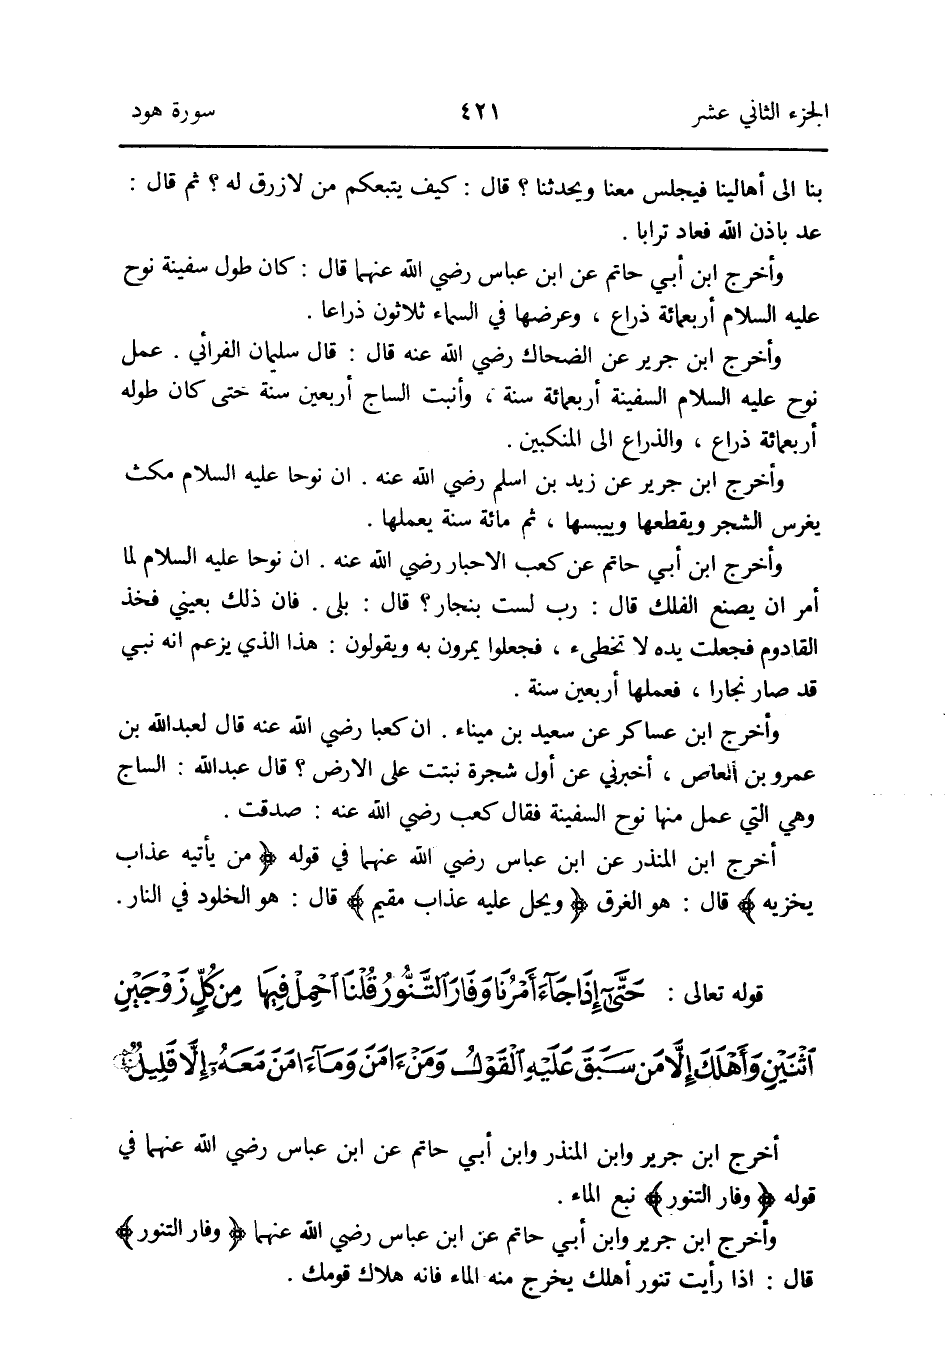 الجزء الثاني عشر ٤٢١ سورة هود
بنا الى أهالينا فيجلس معنا ويحدثنا ؟ قال : كيف يتبعكم من لازرق له ؟ ثم قال :
عد باذن الله فعاد ترابا .
وأخرج ابن أبي حاتم عن ابن عباس رضي الله عنهما قال : كان طول سفينة نوح
عليه السلام أربعمائة ذراع ، وعرضها في السماء ثلاثون ذراعا .
وأخرج ابن جرير عن الضحاك رضي الله عنه قال : قال سليمان الفرائي . عمل
نوح عليه السلام السفينة أربعمائة سنة ، وأنبت الساج أربعين سنة حتى كان طوله
أربعمائة ذراع ، والذراع الى المنكبين .
وأخرج ابن جرير عن زيد بن اسلم رضي الله عنه . ان نوحا عليه السلام مكث
يغرس الشجر ويقطعها وييبسها ، ثم مائة سنة يعملها .
وأخرج ابن أبي حاتم عن كعب الاحبار رضي الله عنه . ان نوحا عليه السلام لما
أمر ان يصنع الفلك قال : رب لست بنجار ؟ قال : بلى . فان ذلك بعيني فخذ
القادوم فجعلت يده لا تخطىء ، فجعلوا يمرون به ويقولون : هذا الذي يزعم انه نبي
قد صار نجارا ، فعملها أربعين سنة .
وأخرج ابن عساكر عن سعيد بن ميناء . ان كعبا رضي الله عنه قال لعبدالله بن
عمرو بن العاص ، أخبرني عن أول شجرة نبتت على الارض ؟ قال عبدالله : الساج
وهي التي عمل منها نوح السفينة فقال كعب رضي الله عنه : صدقت .
أخرج ابن المنذر عن ابن عباس رضي الله عنهما في قوله ﴿ من يأتيه عذاب
يخزيه ﴾ قال : هو الغرق ﴿ ويحل عليه عذاب مقيم ﴾ قال : هو الخلود في النار .
قوله تعالى : حَتَّىٰٓ إِذَا جَآءَ أَمْرُنَا وَفَارَ ٱلتَّنُّورُ قُلْنَا ٱحْمِلْ فِيهَا مِن كُلٍّ زَوْجَيْنِ
ٱثْنَيْنِ وَأَهْلَكَ إِلَّا مَن سَبَقَ عَلَيْهِ ٱلْقَوْلُ وَمَنْ ءَامَنَ وَمَآ ءَامَنَ مَعَهُۥٓ إِلَّا قَلِيلٌ ٤٠
أخرج ابن جرير وابن المنذر وابن أبي حاتم عن ابن عباس رضي الله عنهما في
قوله ﴿ وفار التنور ﴾ نبع الماء .
وأخرج ابن جرير وابن أبي حاتم عن ابن عباس رضي الله عنهما ﴿ وفار التنور ﴾
قال : اذا رأيت تنور أهلك يخرج منه الماء فانه هلاك قومك .